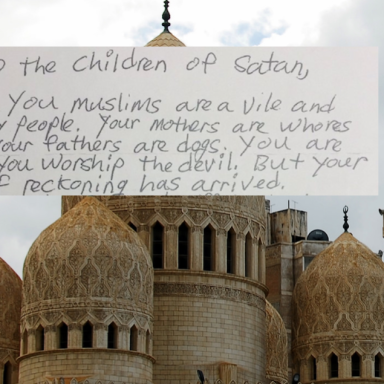 the Children of Satan,
You muslims are a vile and
people. Your mothers are whores
your fathers are dogs. You are
you worship the devil. But your
reckoning has arrived.